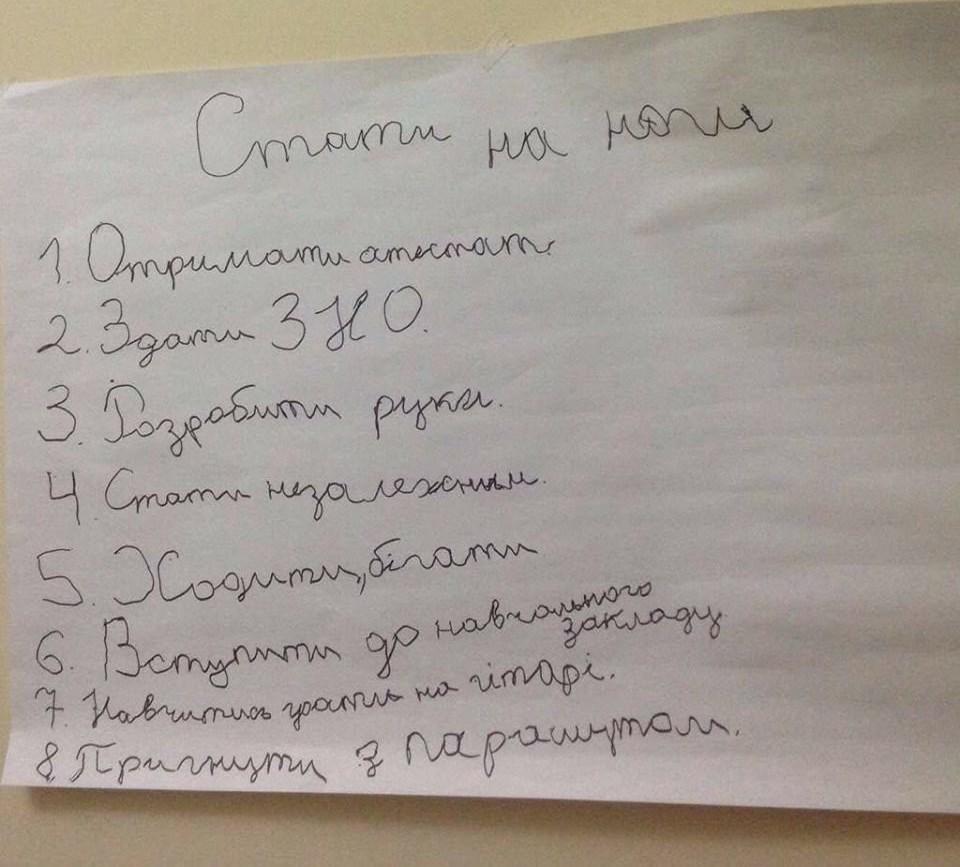 Стати на ноги
1. Отримати атестат.
2. Здати ЗНО.
3. Розробити руки.
4. Стати незалежним.
5. Ходити, бігати
6. Вступити до навчального
закладу
7. Навчитись грати на гітарі.
8. Пригнути з парашутом.